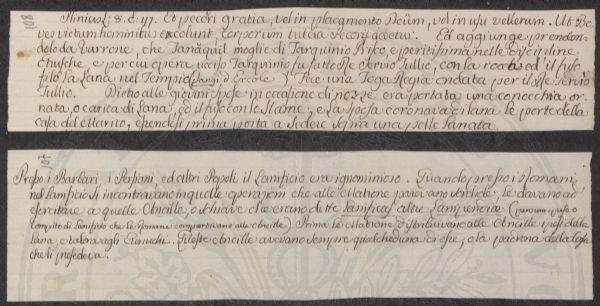 108
Plinius l. 8. c. 47. Et pecori gratia, vel in placamento Deûm, vel in usu vellerum. Ut Bo-
ves victum hominum excolunt, corporum tutela pecori debetur. Ed aggiunge prenden-
dolo da Varrone, che Tanàquil moglie di Tarquinio Prisco, e peritissima nelle discipline
Etrusche e per cui opera ucciso Tarquinio fu fatto Re Servio Tullio, con la rocca ed il fuso
filò la Lana nel Tempio Sangi o Ercole Fece una Toga Regia ondata per il Re Servio
Tullio. Dietro alle giovani spose in occasione di nozze era portata una conocchia or-
nata, o carica di Lana, ed il fuso con lo stame, e la sposa coronava di lana le porte della
casa del Marito, essendosi prima posta a sedere sopra una pelle Lanata.
107
Presso i Barbari, i Persiani, ed altri Popoli il Lanificio era ignominioso. Quando presso i Romani
nel Lanificio si incontravano in quelle operazioni che alle Matrone parevano servili, le davano ad
esercitare a quelle Ancille, o schiave che erano dette Lanificae, altre Lanipendiae (pensum peso o
compito di Lanificio che le Romane compartivano alle Ancille) Prima le Matrone distribuivano alle Ancille i pesi della
lana, e talora agli Eunuchi. Queste Ancille avevano sempre qualcheduna di esse, o la padrona della Casa
che li presedeva.